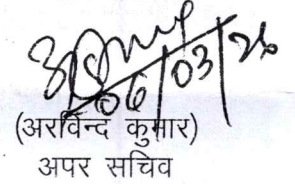 06/03/26
(अरविन्द कुमार)
अपर सचिव